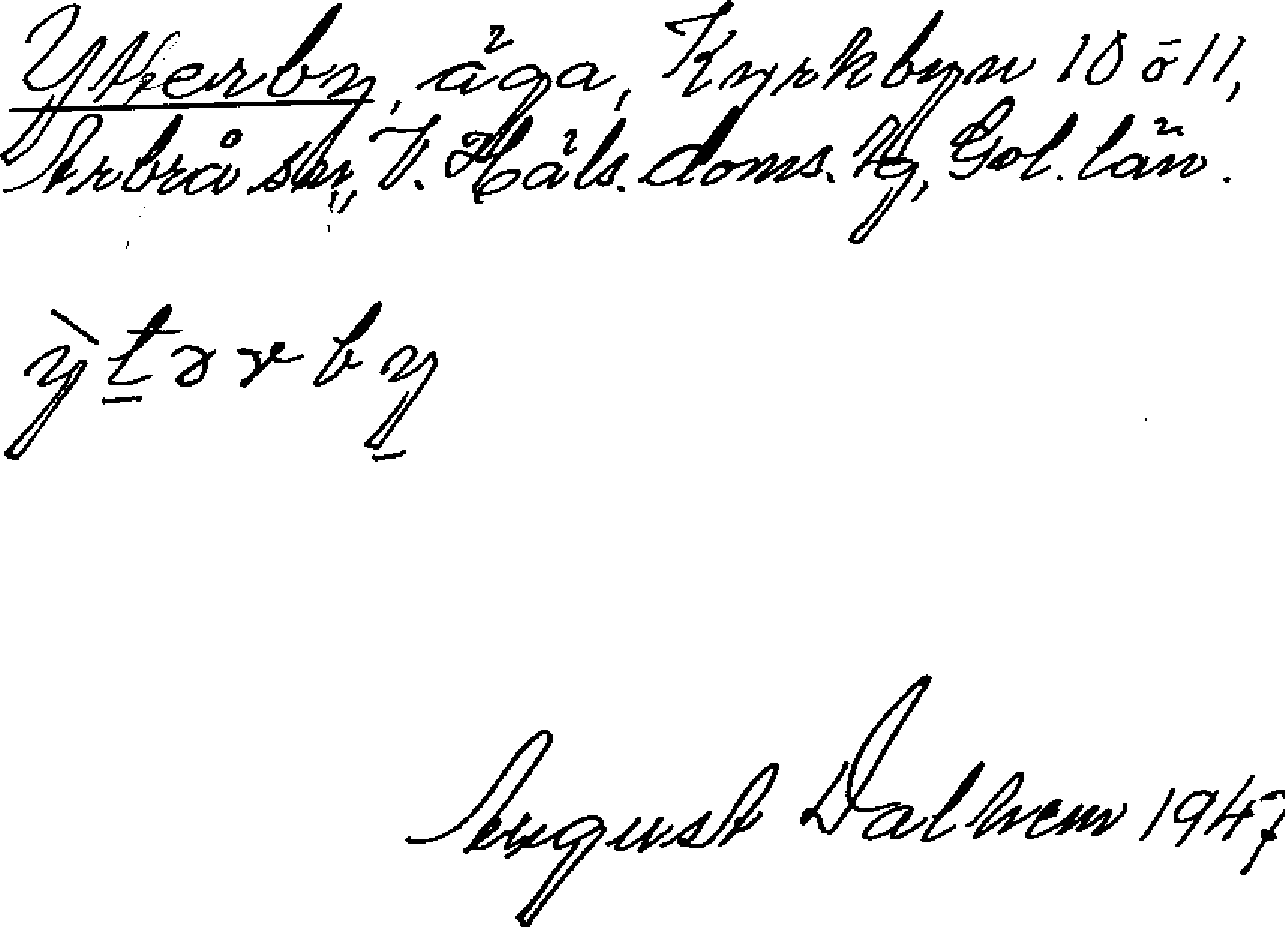 Ytterby, äga, Kyrkbyn 10 o 11,
Arbrå sn, V. Häls. doms. hg, Gvl. län.
ỳ̖ṯərby̱
August Dalhem 1947